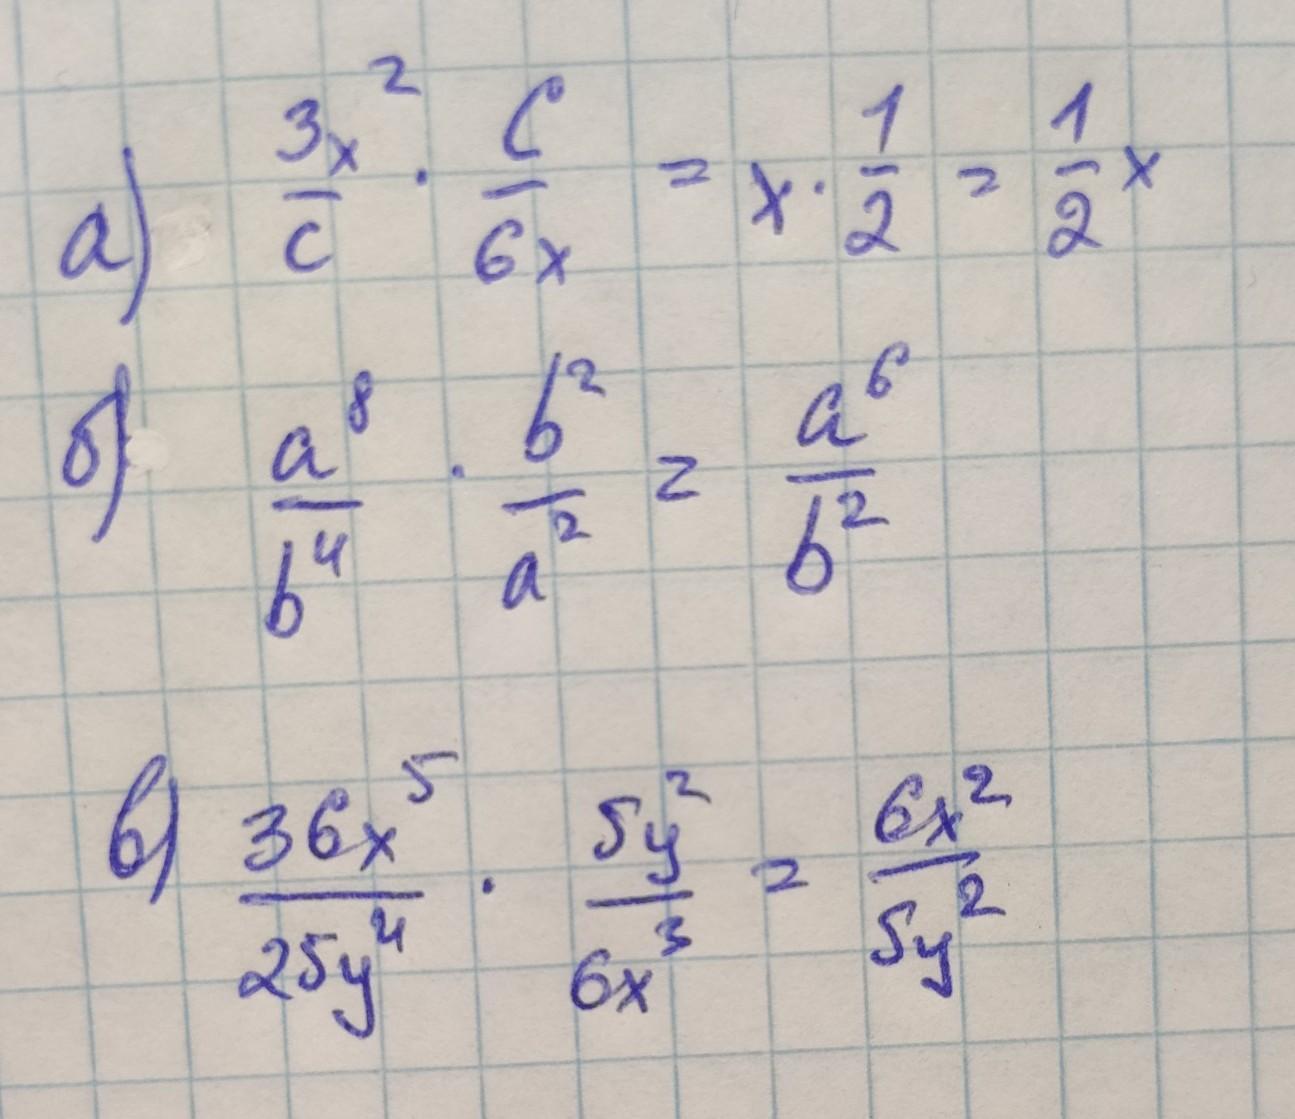 а) 3x²/c · c/6x = x · 1/2 = 1/2 x
б) a⁸/b⁴ · b²/a² = a⁶/b²
в) 36x⁵/25y⁴ · 5y²/6x³ = 6x²/5y²